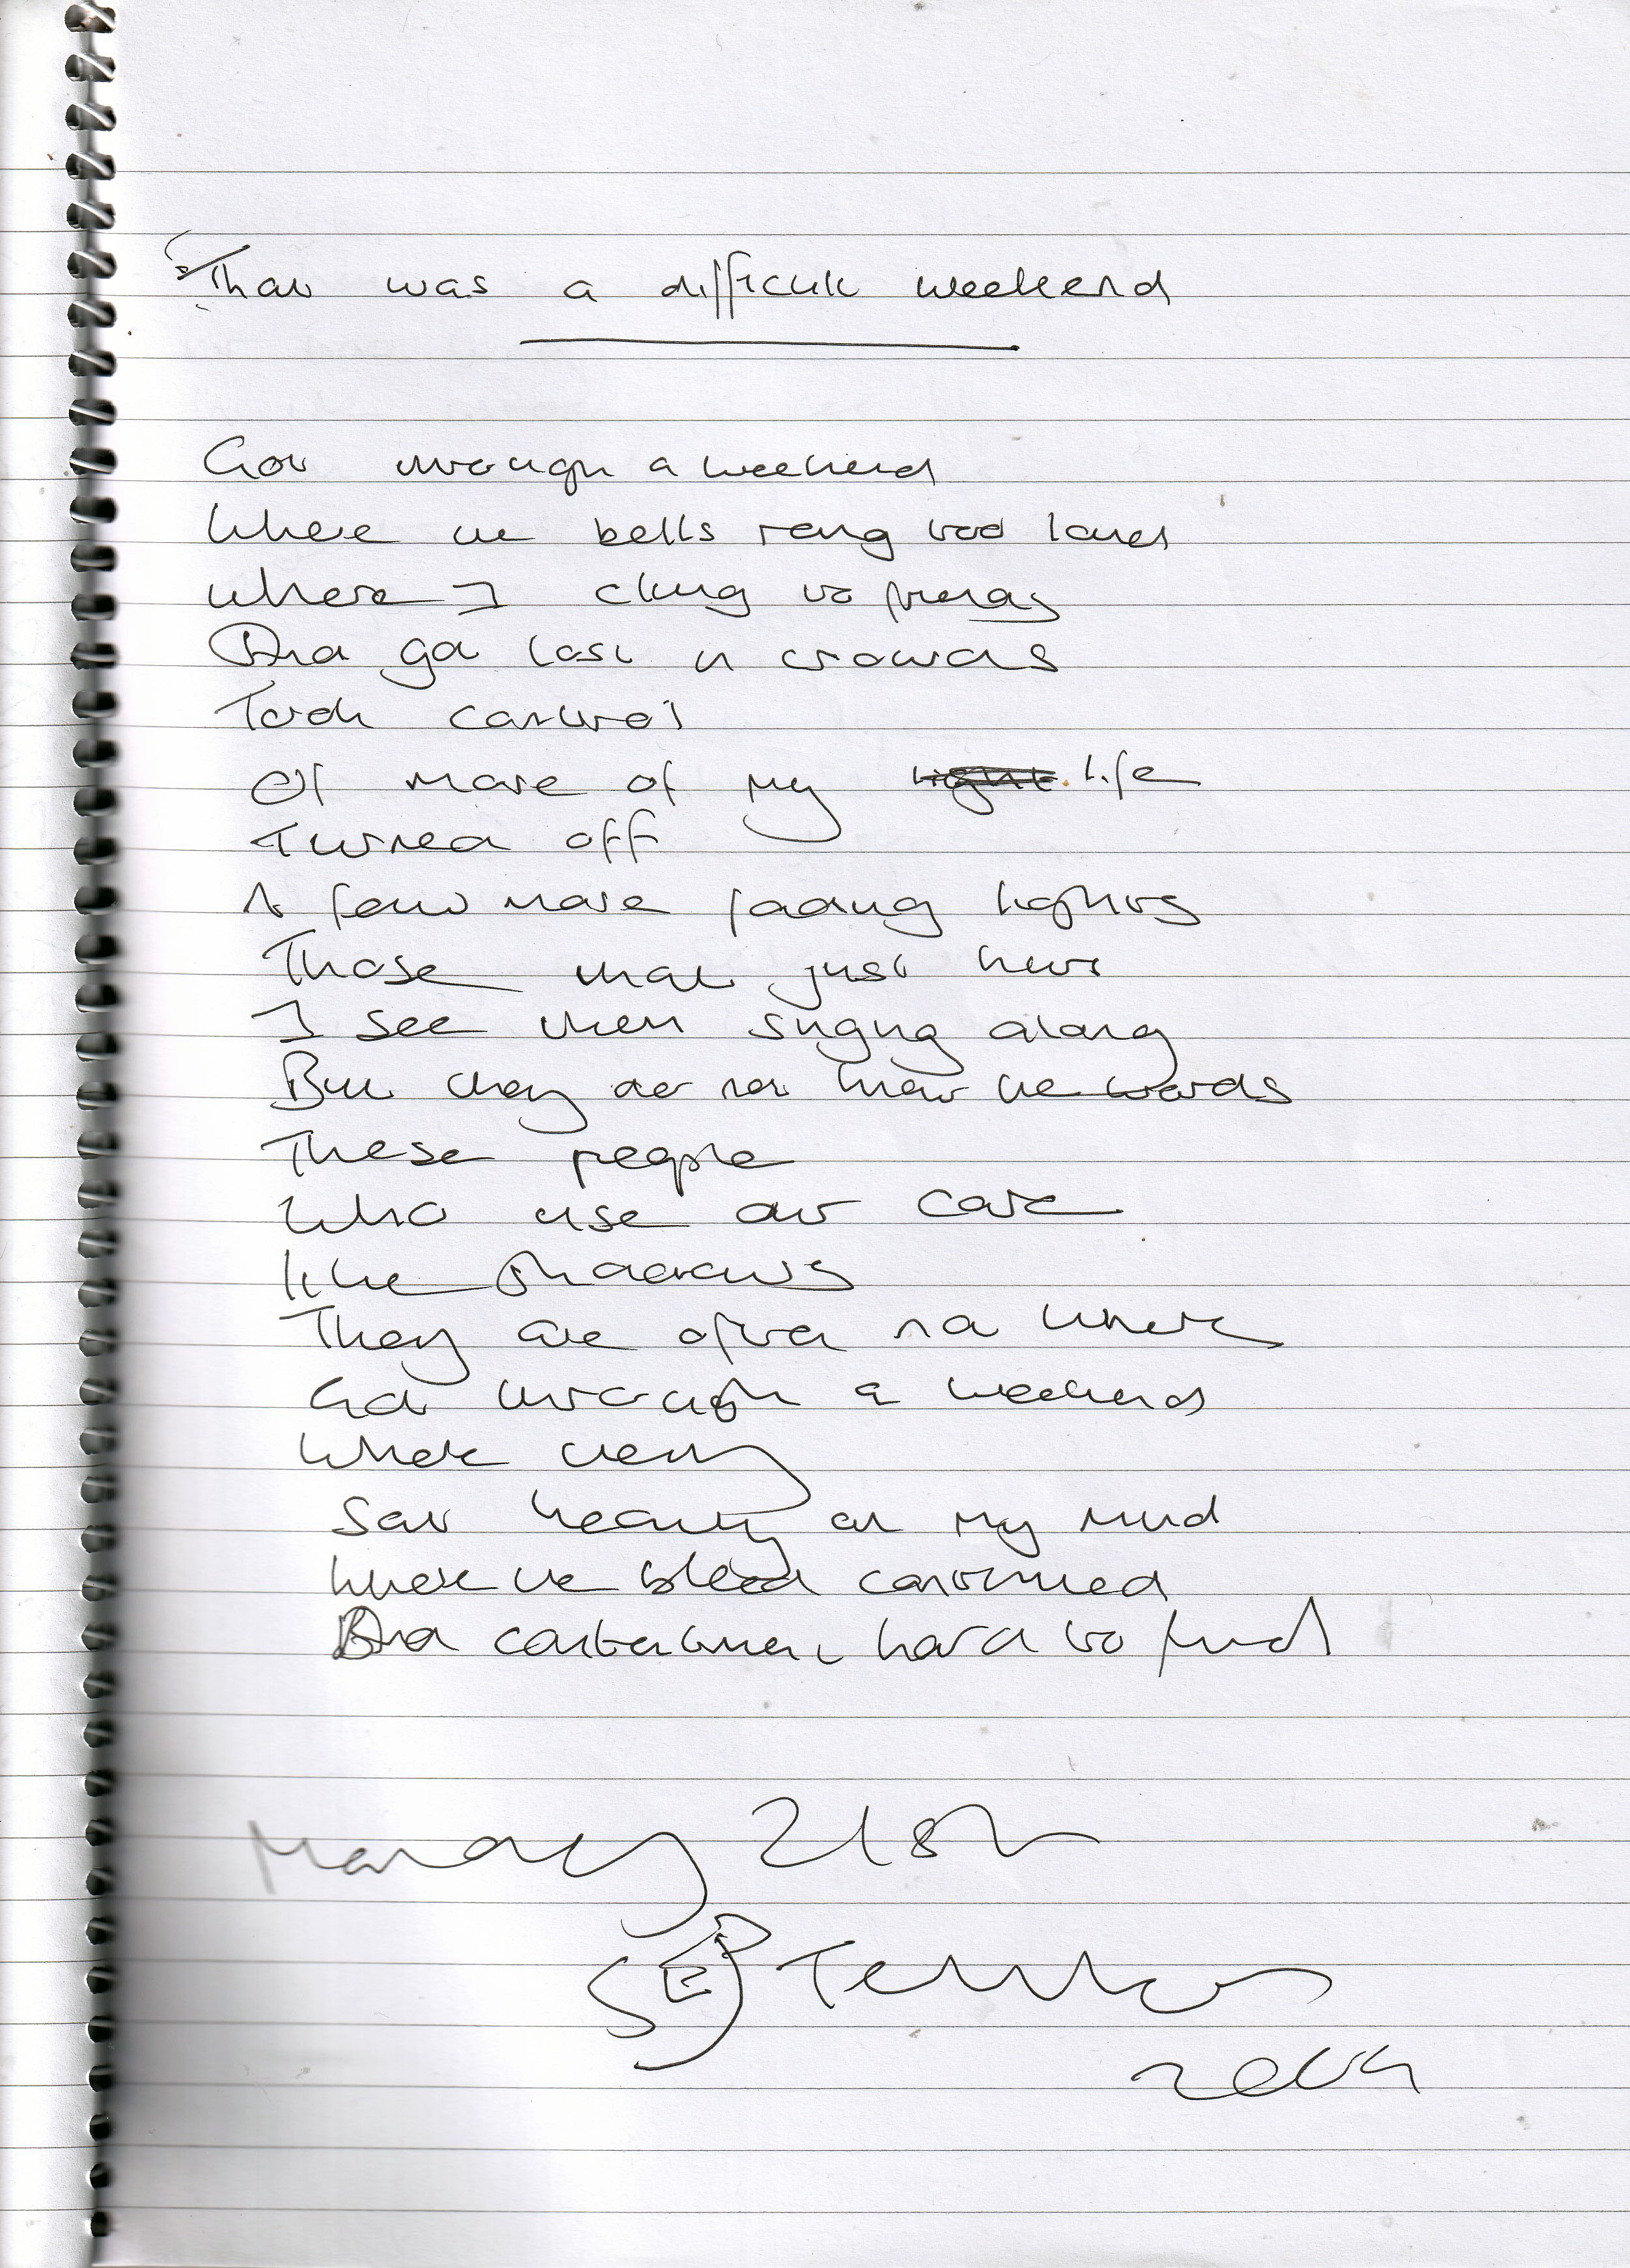 That was a difficult weekend
Got through a weekend
Where the bells rang too loud
Where I clung to friends
And got lost in crowds
Took control
Of more of my life
Turned off
A few more fading lights
Those that just hurt
I see them singing along
But they do not know the words
These people
Who use our care
like shadows
They are often no where
Got through a weekend
Where
Sat heavily on my mind
Where the bleed continued
And contentment hard to find
Monday 21st